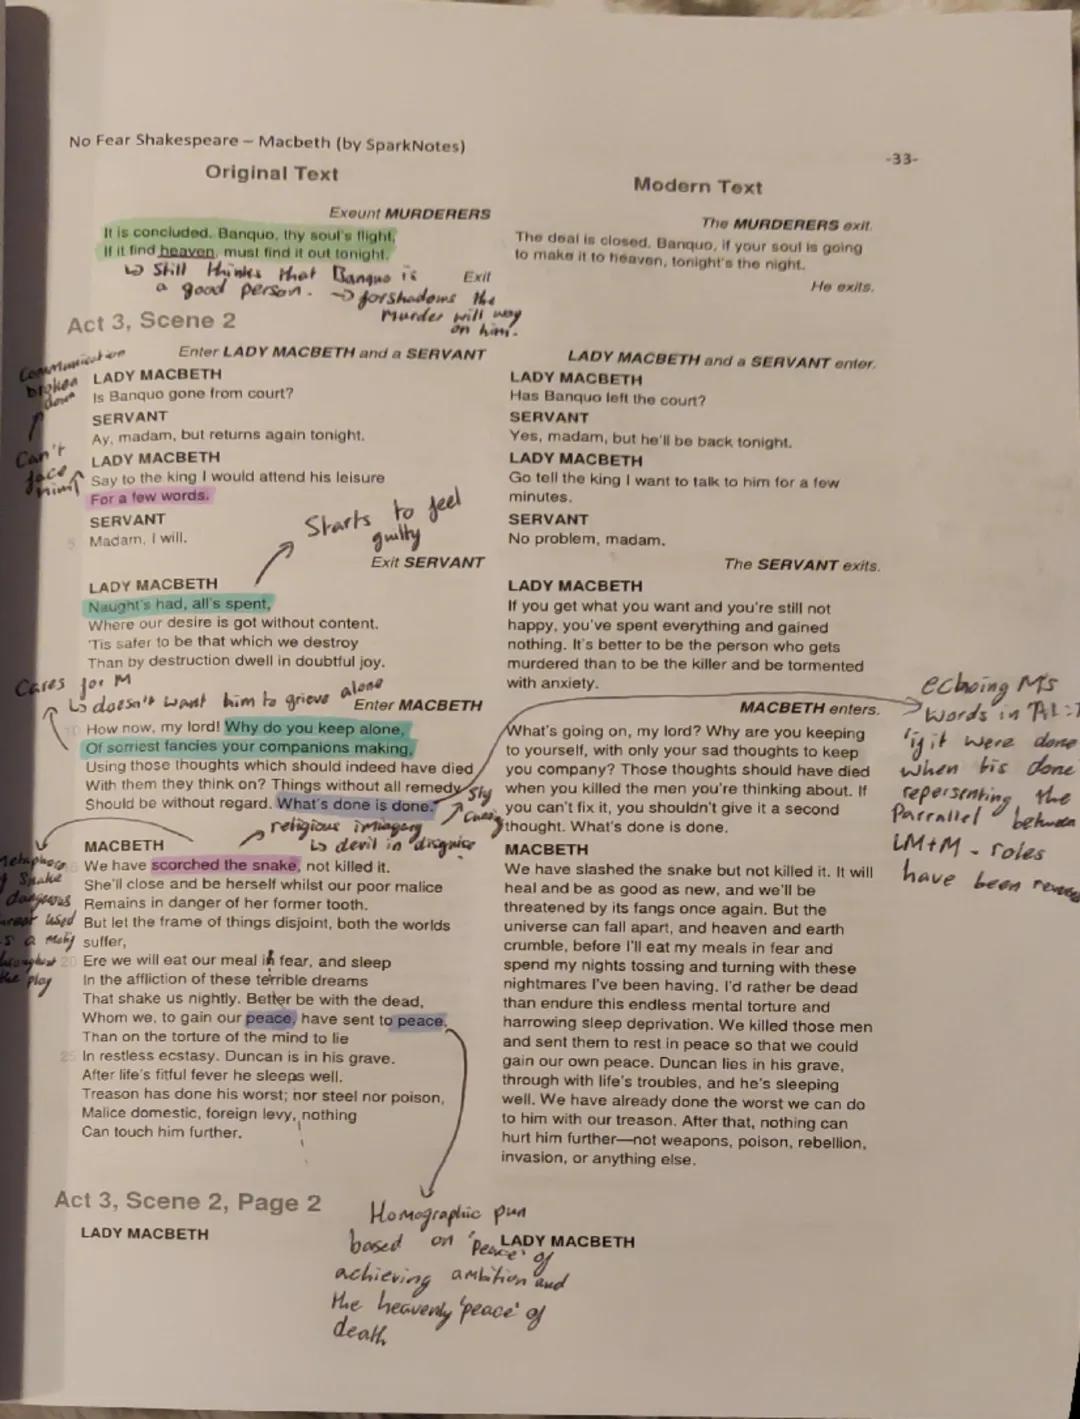 No Fear Shakespeare – Macbeth (by SparkNotes)
-33-
Original Text
Exeunt MURDERERS
It is concluded. Banquo, thy soul's flight,
If it find heaven, must find it out tonight.
Exit
↳ Still thinks that Banquo is
a good person. → forshadows the
murder will way
on him.
Act 3, Scene 2
Enter LADY MACBETH and a SERVANT
Communication
broken
down
Can't
face
him
LADY MACBETH
Is Banquo gone from court?
SERVANT
Ay, madam, but returns again tonight.
LADY MACBETH
Say to the king I would attend his leisure
For a few words.
SERVANT
5 Madam, I will.
Exit SERVANT
Starts to feel
guilty
LADY MACBETH
Naught's had, all's spent,
Where our desire is got without content.
'Tis safer to be that which we destroy
Than by destruction dwell in doubtful joy.
Cares for M
↳ doesn't want him to grieve alone
Enter MACBETH
10 How now, my lord! Why do you keep alone,
Of sorriest fancies your companions making,
Using those thoughts which should indeed have died
With them they think on? Things without all remedy
Should be without regard. What's done is done.
sly
religious imiagery
↳ devil in disguise
MACBETH
We have scorched the snake, not killed it.
She'll close and be herself whilst our poor malice
Remains in danger of her former tooth.
But let the frame of things disjoint, both the worlds
suffer,
20 Ere we will eat our meal in fear, and sleep
In the affliction of these terrible dreams
That shake us nightly. Better be with the dead,
Whom we, to gain our peace, have sent to peace,
Than on the torture of the mind to lie
25 In restless ecstasy. Duncan is in his grave.
After life's fitful fever he sleeps well.
Treason has done his worst; nor steel nor poison,
Malice domestic, foreign levy, nothing
Can touch him further.
snake
dangerous
used
the play
Act 3, Scene 2, Page 2
LADY MACBETH
Homographic pun
based on 'peace' of
achieving ambition and
the heavenly 'peace' of
death
Modern Text
The MURDERERS exit.
The deal is closed. Banquo, if your soul is going
to make it to heaven, tonight's the night.
He exits.
LADY MACBETH and a SERVANT enter.
LADY MACBETH
Has Banquo left the court?
SERVANT
Yes, madam, but he'll be back tonight.
LADY MACBETH
Go tell the king I want to talk to him for a few
minutes.
SERVANT
No problem, madam.
The SERVANT exits.
LADY MACBETH
If you get what you want and you're still not
happy, you've spent everything and gained
nothing. It's better to be the person who gets
murdered than to be the killer and be tormented
with anxiety.
MACBETH enters.
What's going on, my lord? Why are you keeping
to yourself, with only your sad thoughts to keep
you company? Those thoughts should have died
when you killed the men you're thinking about. If
you can't fix it, you shouldn't give it a second
thought. What's done is done.
MACBETH
We have slashed the snake but not killed it. It will
heal and be as good as new, and we'll be
threatened by its fangs once again. But the
universe can fall apart, and heaven and earth
crumble, before I'll eat my meals in fear and
spend my nights tossing and turning with these
nightmares I've been having. I'd rather be dead
than endure this endless mental torture and
harrowing sleep deprivation. We killed those men
and sent them to rest in peace so that we could
gain our own peace. Duncan lies in his grave,
through with life's troubles, and he's sleeping
well. We have already done the worst we can do
to him with our treason. After that, nothing can
hurt him further—not weapons, poison, rebellion,
invasion, or anything else.
LADY MACBETH
echoing M's
words in
'if it were done
when tis done
repersenting the
Parrallel between
LM+M - roles
have been